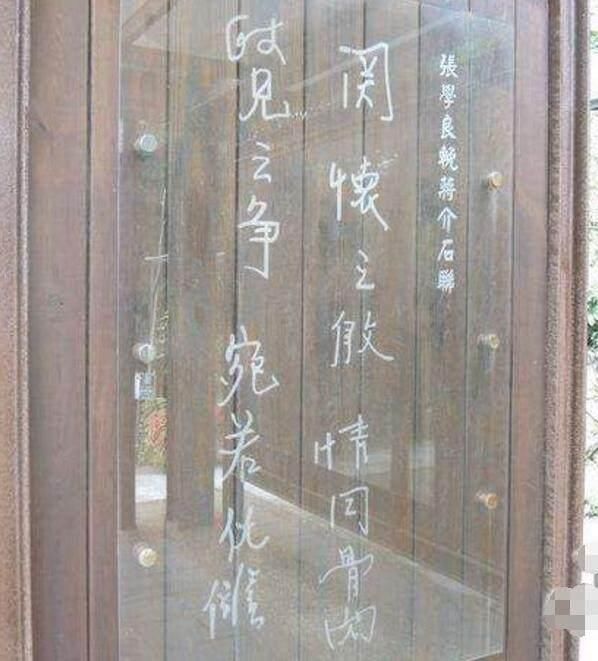 張學良輓蔣介石聯
関懷之殷 情同骨肉
政見之争 宛若仇讎